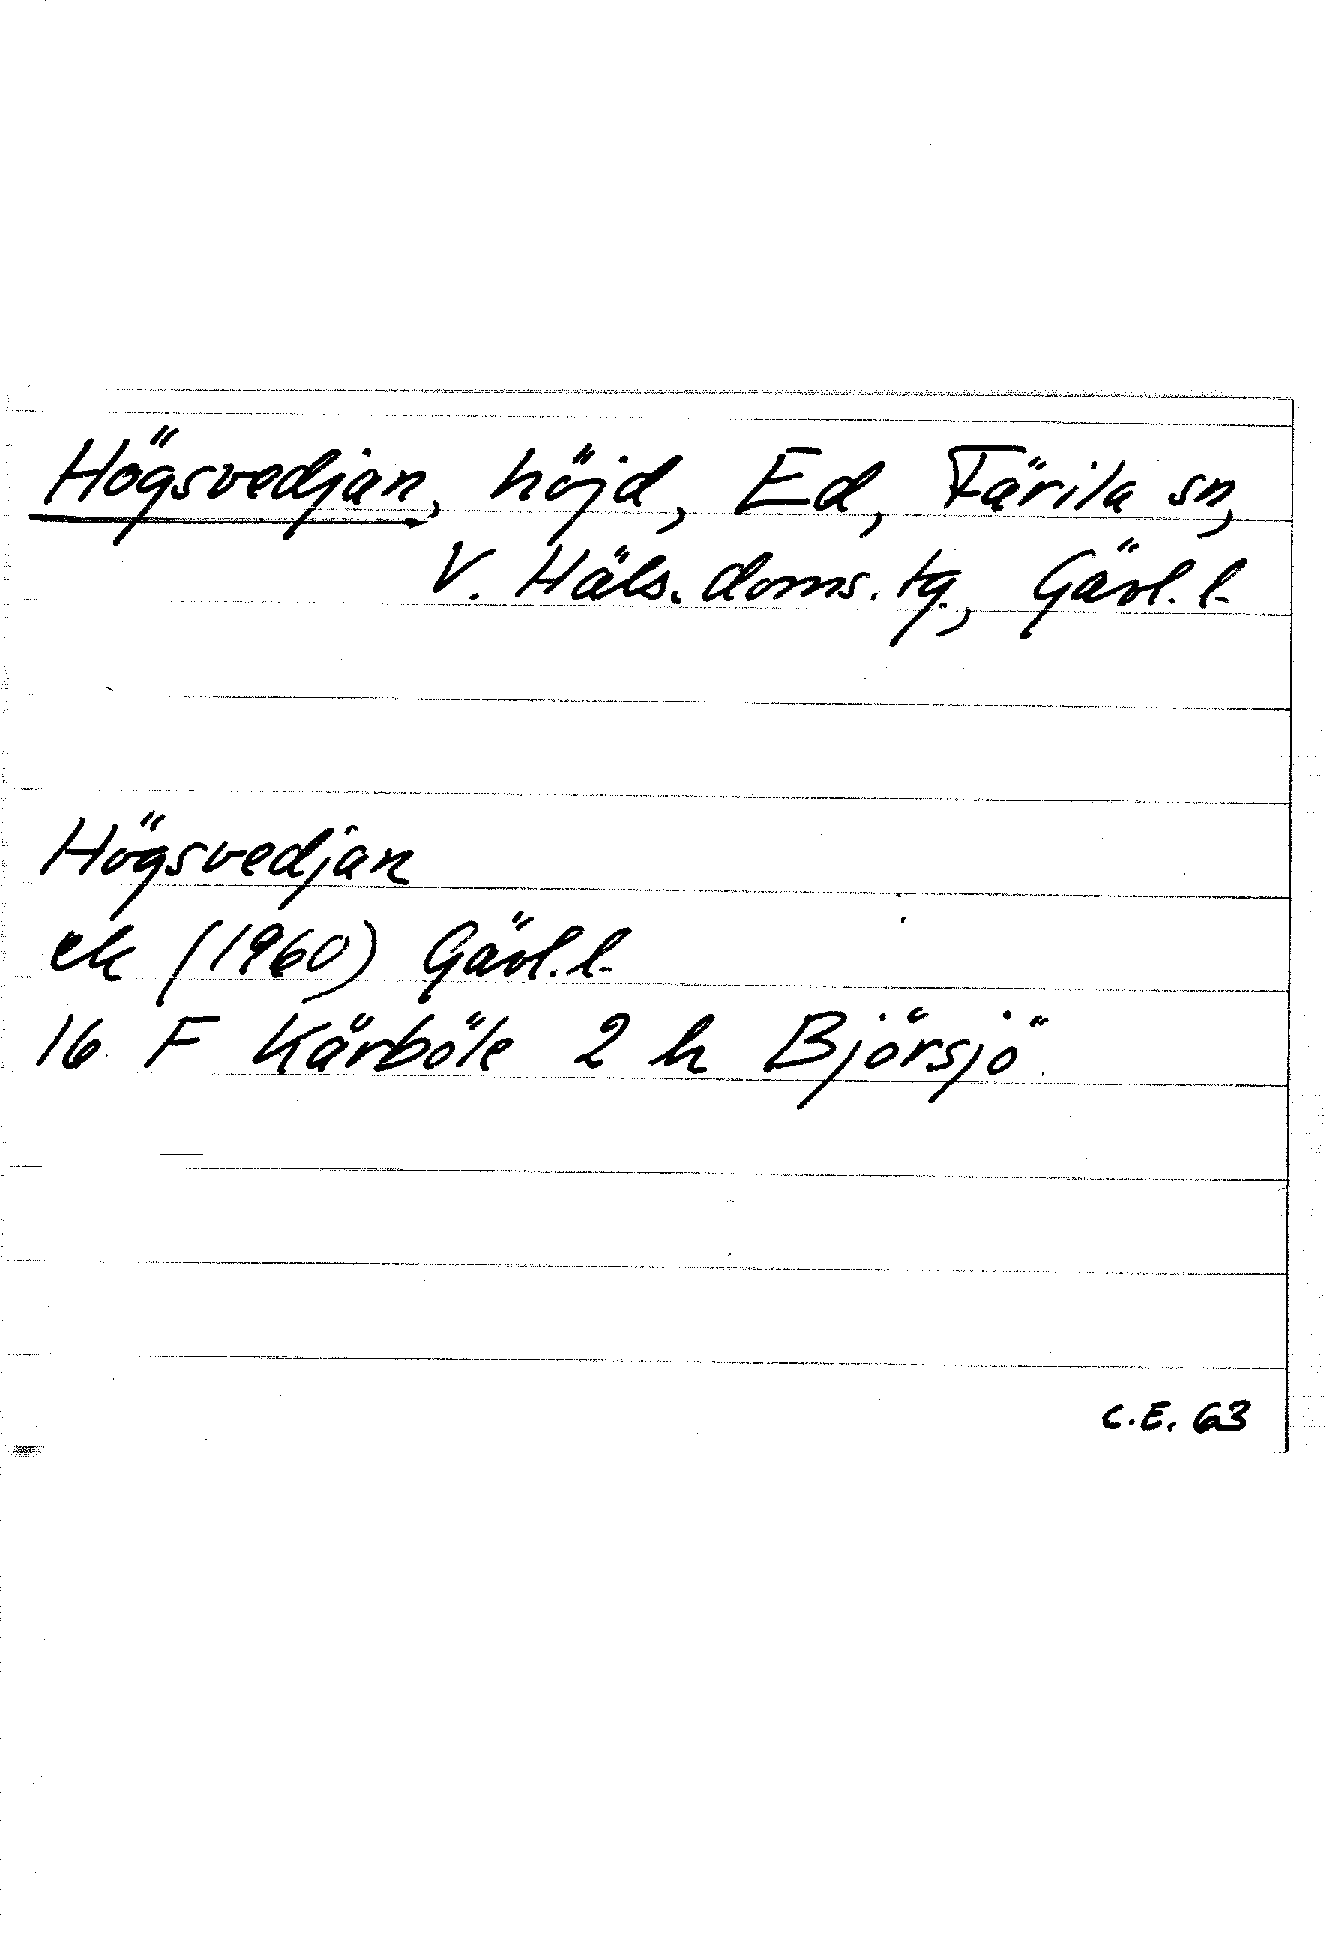 Högsvedjan, höjd, Ed, Färila sn,
V. Häls. doms. tg., Gävl. l.
Högsvedjan
ek (1960) Gävl. l.
16 F Kårböle 2 h Björsjö
C.E. 63